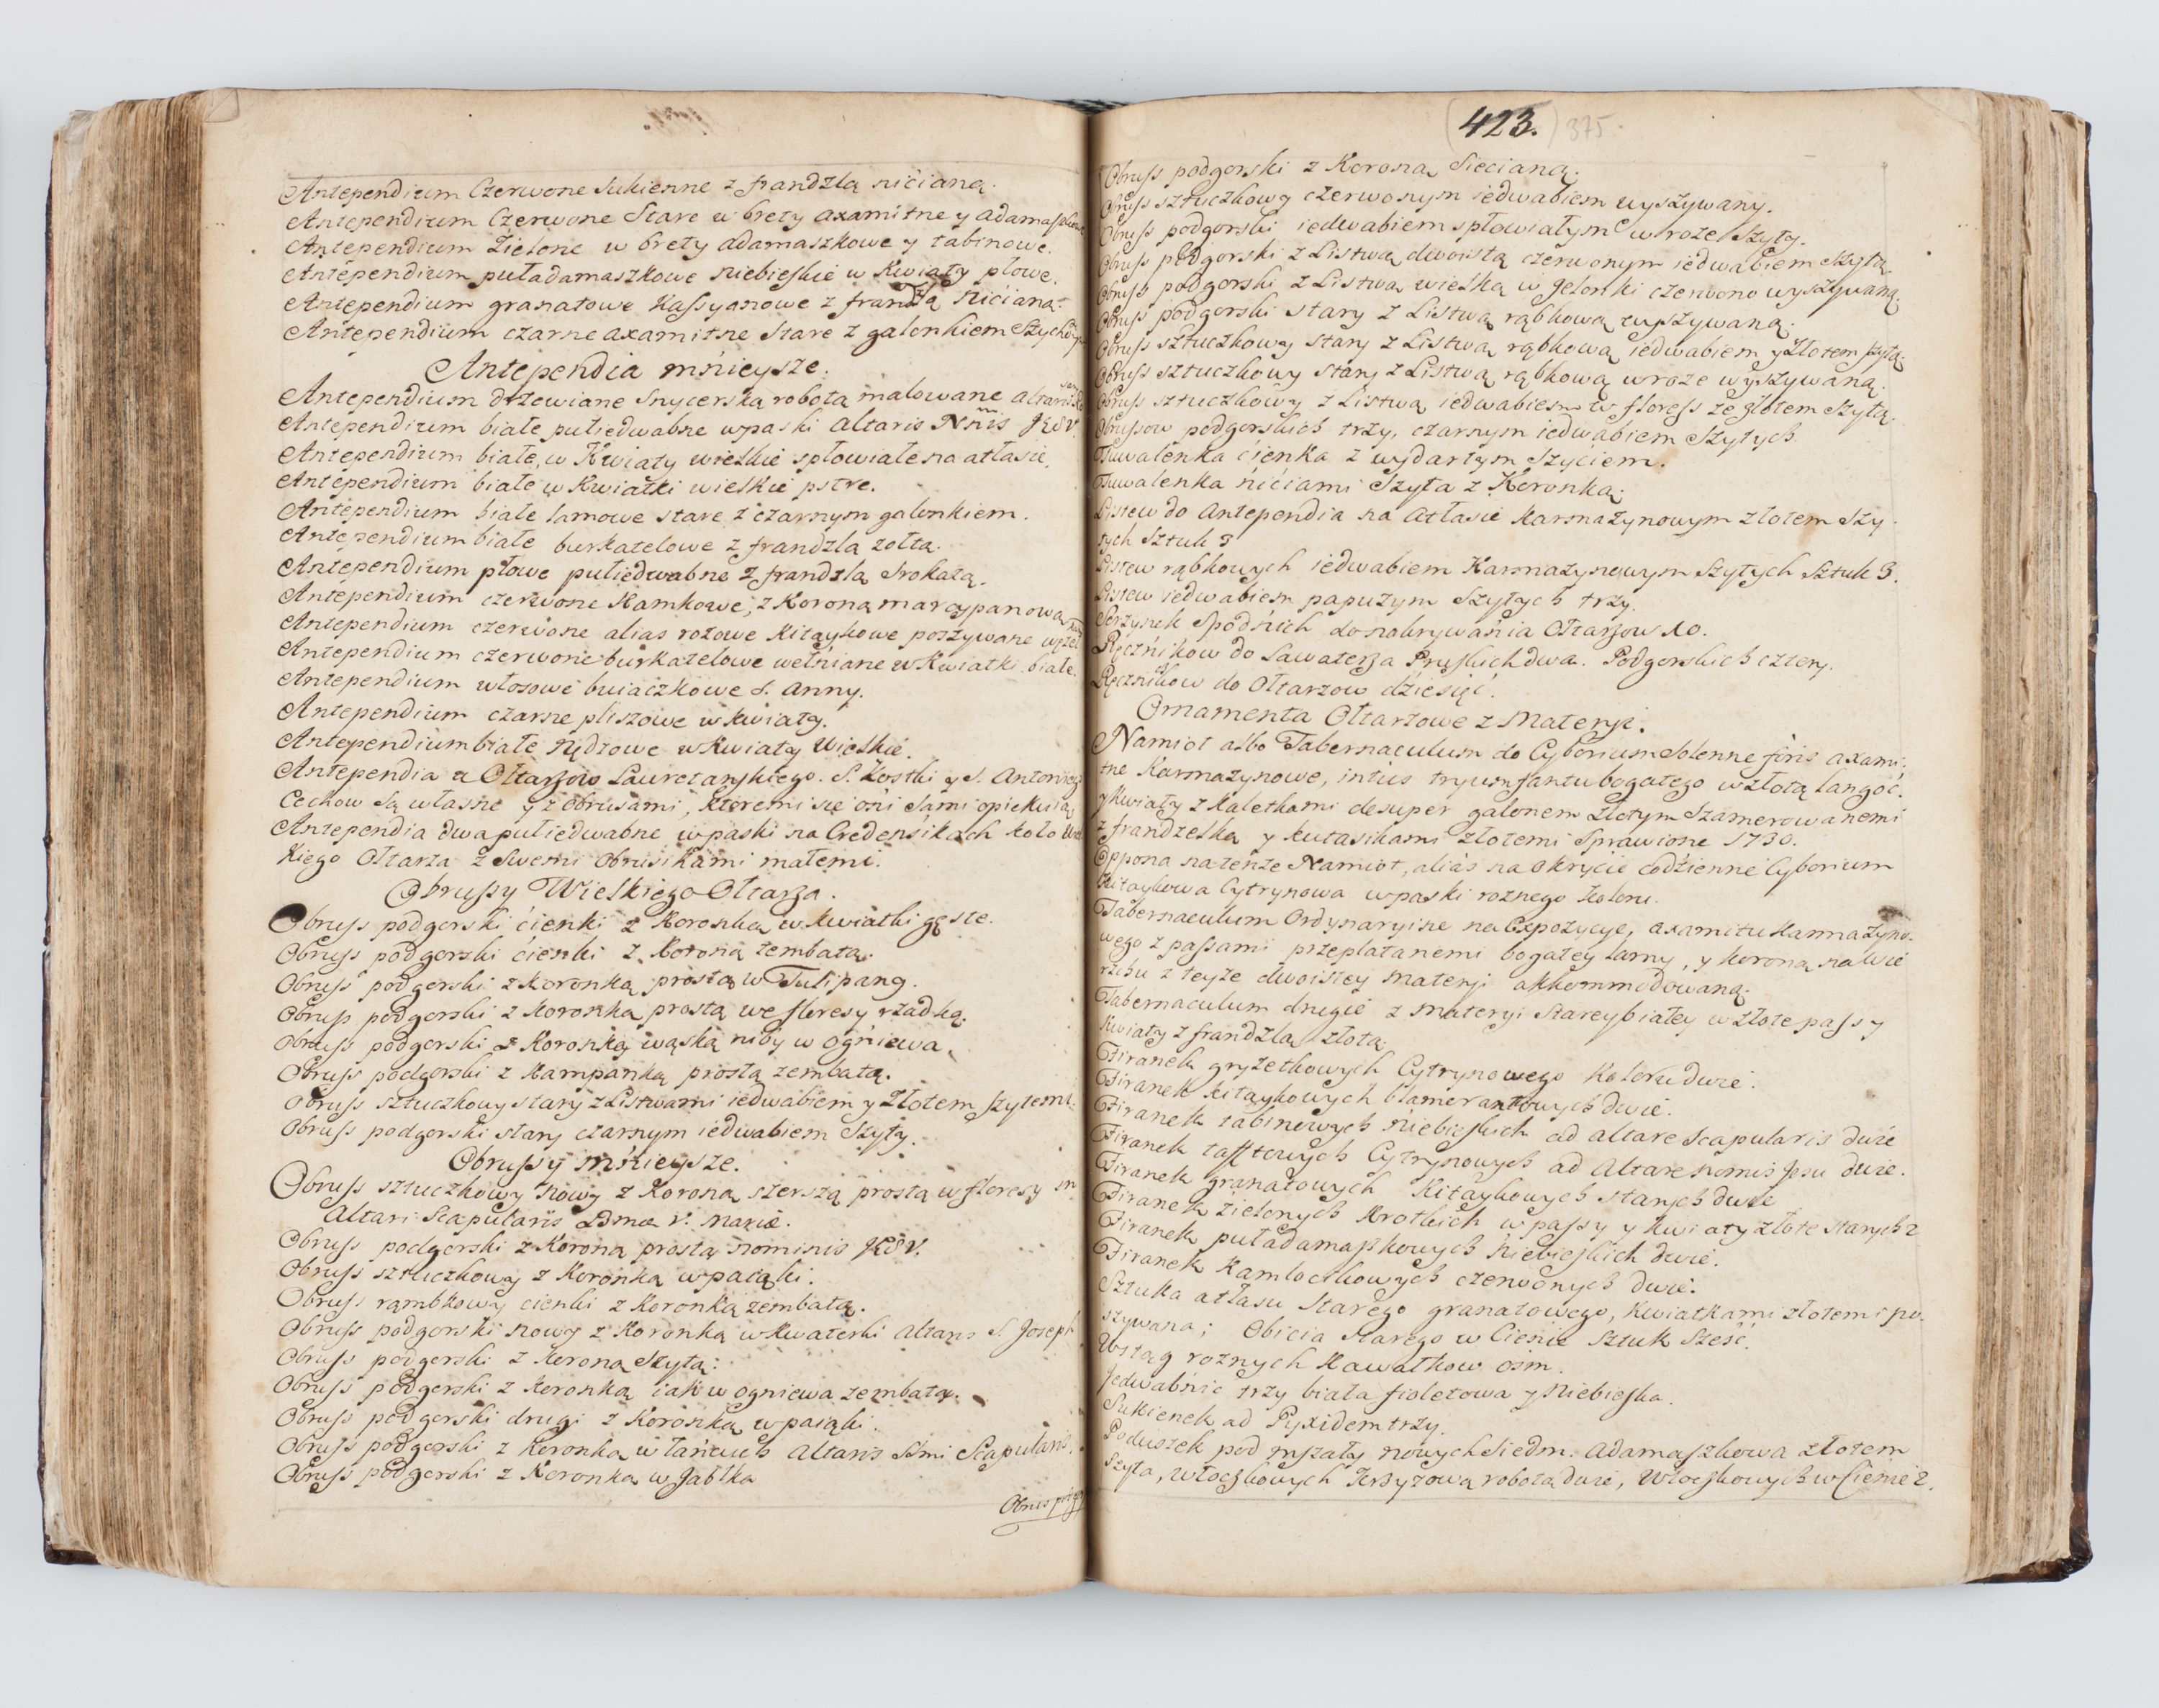 Antependium Czerwone Sukienne z frandzlą niċianą.
Antependium Czerwone Stare w brety axamitne y adamaszkowe
Antependium Zielone w brety adamaszkowe y tabinowe.
Antependium puładamaszkowe niebieskie w Kwiaty płowe.
Antependium granatowe Kassyanowe z frandzlą niċianą.
Antependium czarne axamitne Stare z galonkiem Szychowym
Antependia mnieysze.
Antependium drzewiane Snycerską robotą malowane
Antependium białe pułiedwabne w paski Altaris Nnis JESV.
Antependium białe, w Kwiaty wielkie spłowiałe na atłasie.
Antependium białe w Kwiatki wielkie pstre.
Antependium białe lamowe stare z czarnym galonkiem.
Antependium białe burkatelowe z frandzlą zołtą.
Antependium płowe pułiedwabne z frandzlą srokatą.
Antependium czerwone Kamkowe, z Koroną marcypanową
Antependium czerwone alias rozowe Kitaykowe poszywane
Antependium czerwone burkatelowe wełniane w Kwiatki białe.
Antependium włosowe buiaczkowe S. Anny.
Antependium czarne pliszowe w kwiaty.
Antependium białe rydzowe w Kwiaty Wielkie.
Antependia u Ołtarzow Lauretanskiego. S. Kostki y S. Antoniego
Cechow Są własne y z obrusami, ktoremi się oni Sami opiekuią
Antependia dwa pułiedwabne w paski na Credensikach koło Wiel
kiego Ołtarza z Swemi Obrusikami małemi.
Obrussy Wielkiego Ołtarza.
Obruss podgorski ċienki z Koronką w kwiatki gęste.
Obruss podgorski ċienki z Koroną zembatą.
Obruss podgorski z Koronką prostą w Tulipany.
Obruss podgorski z Koronką prostą we floresy rzadką.
Obruss podgorski z Koronką wąską niby w ogniewa.
Obruss podgorski z Kampanką prostą zembatą.
Obruss sztuczkowy stary z Listwami iedwabiem y Złotem szytemi.
Obruss podgorski stary czarnym iedwabiem Szyty.
Obrussy mnieysze.
Obruss sztuczkowy nowy z Koroną szerszą prostą w floresy in
Altari Scapularis Bmæ V. Mariæ.
Obruss podgorski z Koroną prostą nominis JESV.
Obruss sztuczkowy z Koronką w paiąki.
Obruss rąmbkowy cienki z Koronką zembatą.
Obruss podgorski nowy z Koronką w kwaterki Altaris S. Joseph
Obruss podgorski z Koroną Szytą:
Obruss podgorski z Koronką iak w ogniewa zembatą.
Obruss podgorski drugi z Koronką w paiąki.
Obruss podgorski z Koronką w łancuch Altaris Smi Scapularis.
Obruss podgorski z Koronką w Jabłka
Obrus podgor
423. 375
Obruss podgorski z Koroną Siecianą.
Obruss sztuczkowy czerwonym iedwabiem wyszywany.
Obruss podgorski iedwabiem spłowiałym w roze Szyty.
Obruss podgorski z Listwą dwoistą czerwonym iedwabiem szytą.
Obruss podgorski z Listwą wielką w Jelonki czerwono wyszywaną.
Obruss podgorski stary z Listwą rąbkową wyszywaną.
Obruss sztuczkowy stary z Listwą rąbkową iedwabiem y Złotem szytą.
Obruss sztuczkowy stary z Listwą rąbkową w roze wyszywaną.
Obruss sztuczkowy z Listwą iedwabiem w floress ze złotem szytą.
Obrussow podgorskich trzy, czarnym iedwabiem Szytych.
Tuwalenka ċienka z wydartym szyċiem.
Tuwalenka niċiami Szyta z Koronką.
Listew do Antependia na Atłasie karmazynowym złotem Szy
tych Sztuk 3
Listew rąbkowych iedwabiem Karmazynowym Szytych Sztuk 3.
Listew iedwabiem papuzym Szytych trzy.
Perzynek Spodnich do nakrywania Ołtarzow 10.
Ręcznikow do Lawaterza Pruskich dwa. Podgorskich cztery.
Ręcznikow do Ołtarzow dziesięċ.
Ornamenta Ołtarzowe z Materyi.
Namiot albo Tabernaculum do Cyborium Solenne foris axami:
tne Karmazynowe, intus tryumfantu bogatego w złotą langoċ.
y Kwiaty z Kaletkami desuper galonem złotym Szamerowanemi
z frandzelką y kutasikami złotemi Sprawione 1730.
Oppona na tenze Namiot, alias na okrycie codzienne Cyborium
Kitaykowa Cytrynowa w paski roznego koloru.
Tabernaculum Ordynaryine na Expozycye, axamitu Karmazyno:
wego z passami przeplatanemi bogatey lamy, y koroną na Wie
rzchu z teyze dwoistey materyi akkommodowaną.
Tabernaculum drugie z materyi Starey białey w złote passy
Kwiaty z frandzlą złotą.
Firanek gryzetkowych Cytrynowego Koloru dwie.
Firanek kitaykowych blamerantowych dwie.
Firanek tabinowych niebieskich ad altare Scapularis dwie
Firanek tafftowych Cytrynowych ad Altare nominis Jesu dwie.
Firanek granatowych Kitaykowych starych dwie
Firanek zielonych krotkich w passy y kwiaty złote starych 2
Firanek puładamaszkowych niebieskich dwie.
Firanek Kamlotkowych czerwonych dwie.
Sztuka atłasu Starego granatowego, Kwiatkami złotemi po:
szywana; Obicia starego w Cienie Sztuk Sześċ.
Wstąg roznych Kawałkow ośm.
Jedwabnic trzy biała fioletowa y niebieska.
Sukienek ad Pyxidem trzy.
Poduszek pod mszały nowych Siedm. Adamaszkowa złotem
Szyta, włoczkowych krzyzową robotą dwie, Włoczkowych w Cienie 2.